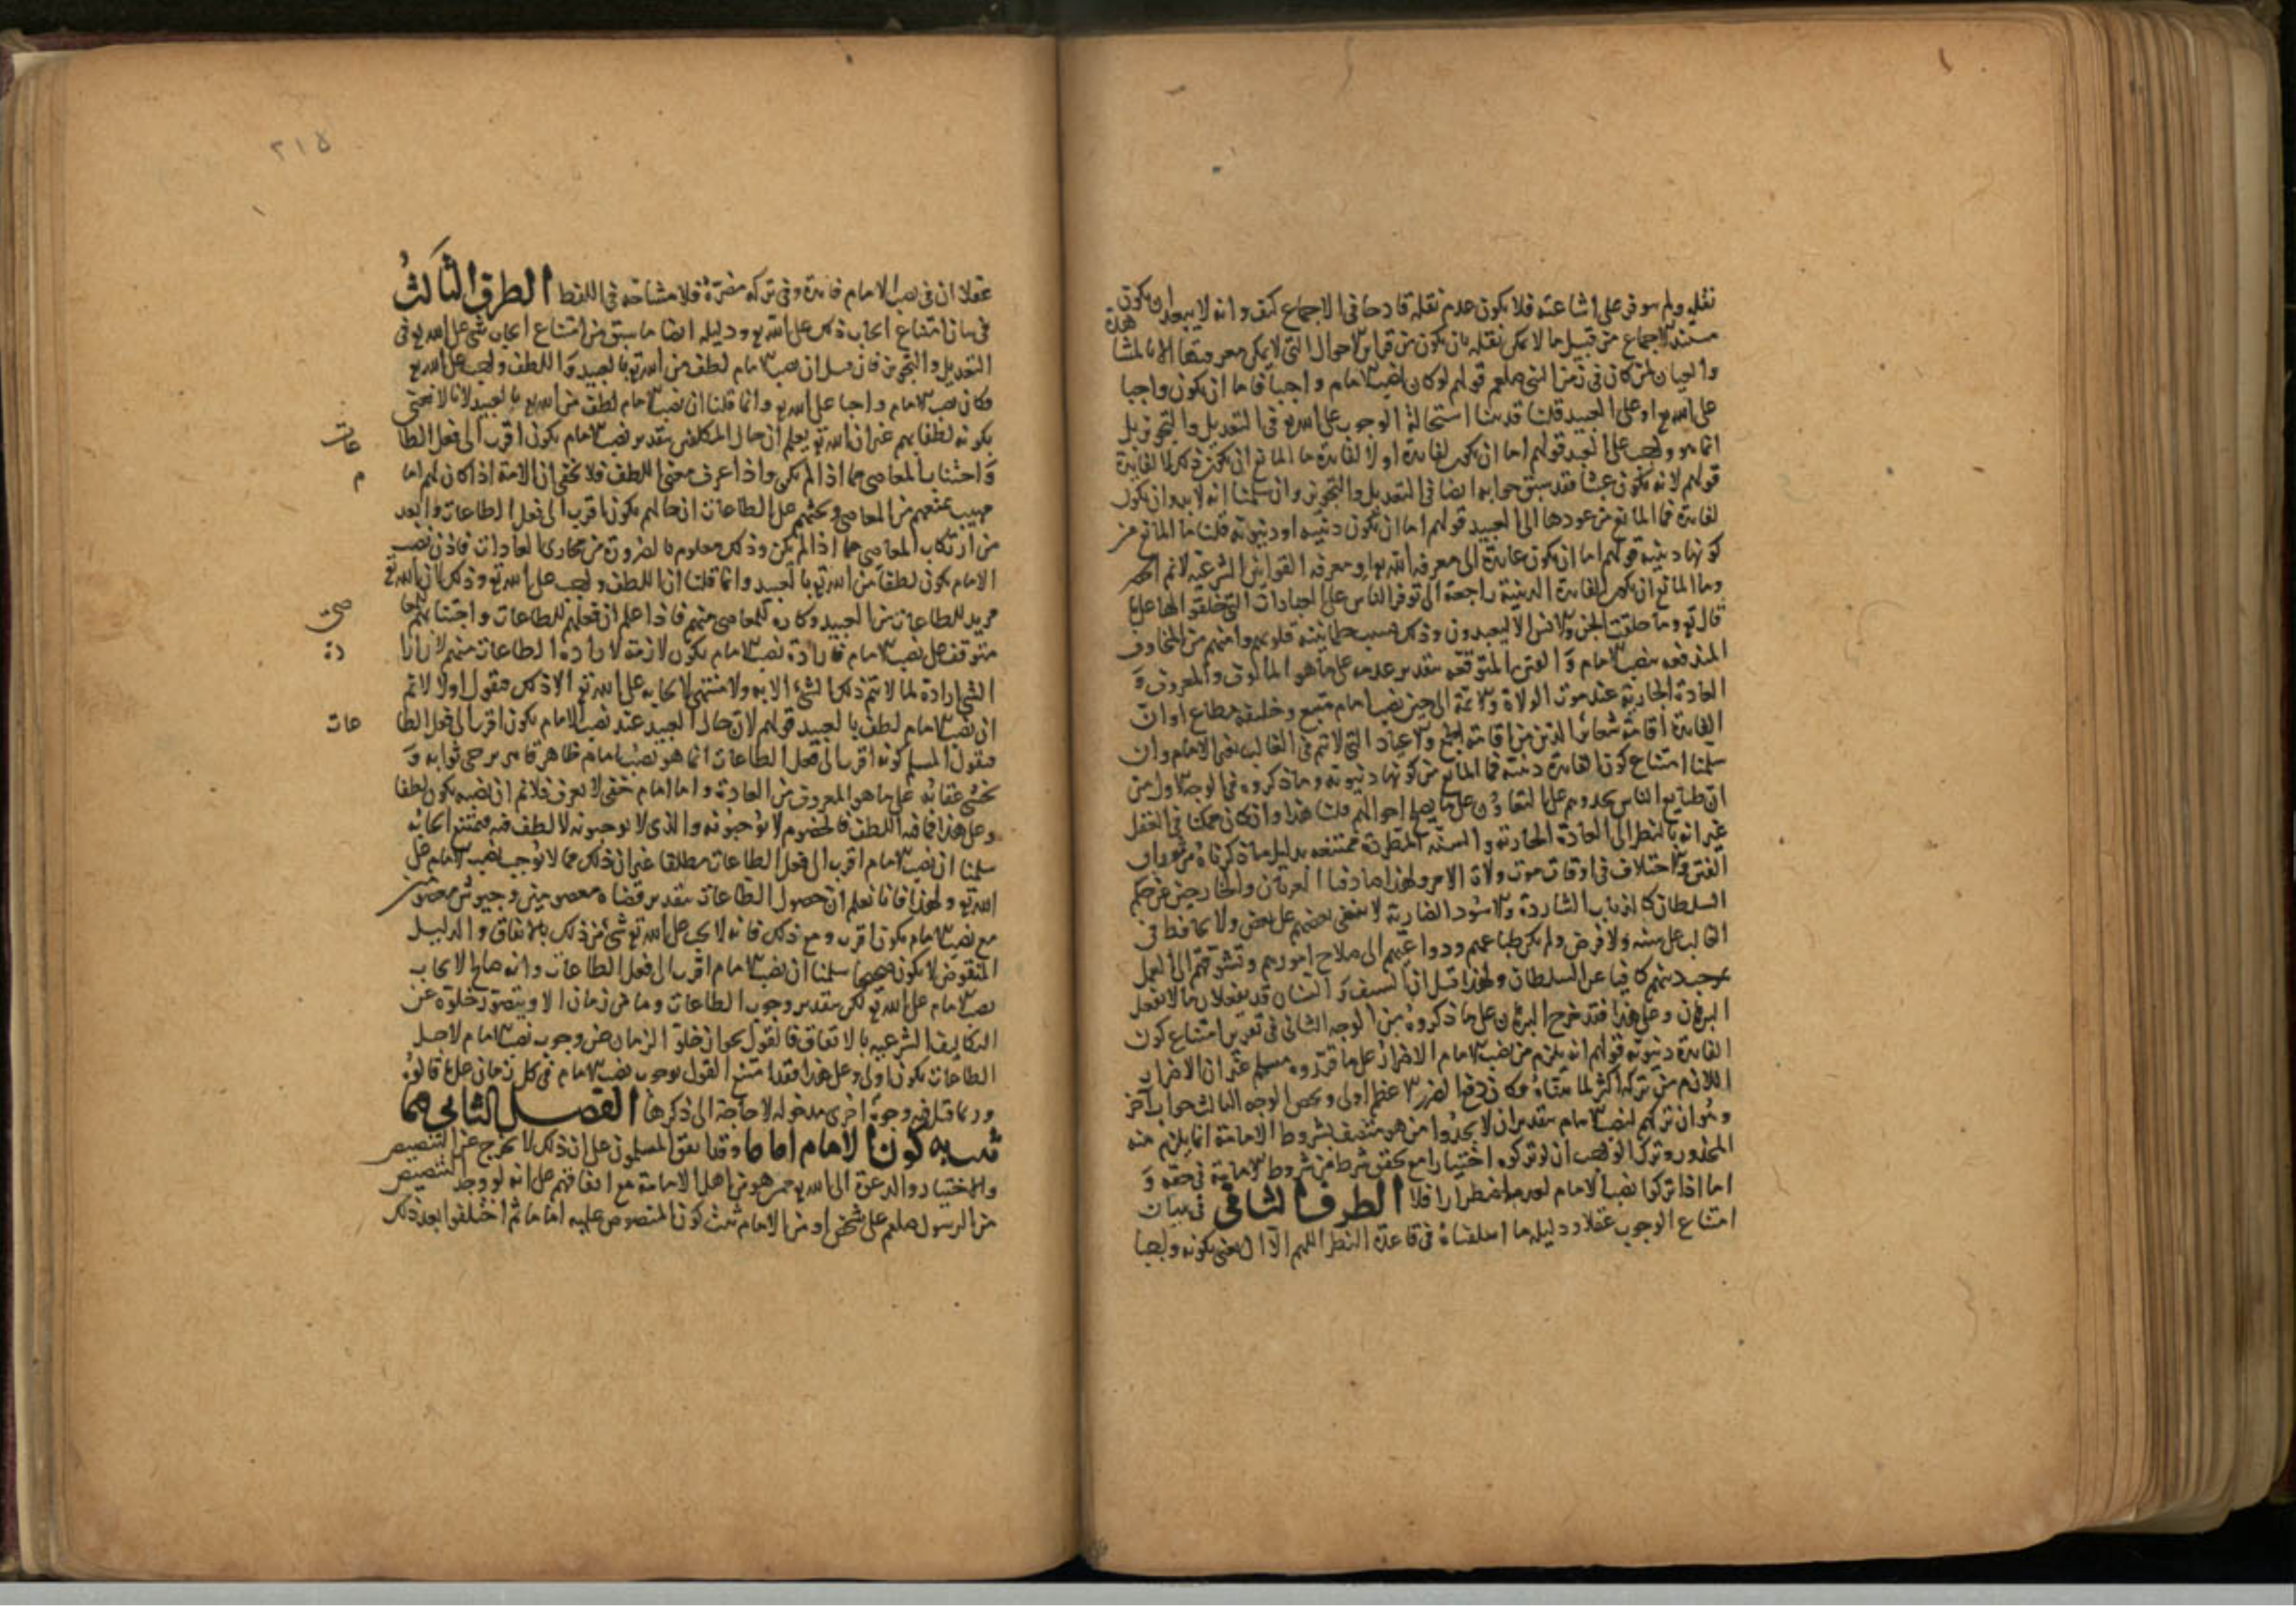 نقله ولم سوفر على اشاعته فلا يكون عدم نقله قادحا في الاجماع كيف وانه لا يبعد ان يكون
مستند الاجماع من قبيل ما لا يمكن نقله بان يكون من قراين الاحوال التي لا يمكن معرفتها الا بالمشاهدة
والعيان لمن كان في زمن النبي صلعم قولهم لو كان نصب الامام واجبا فاما ان يكون واجبا
على الله تع او على العبيد قلنا قد بينا استحالة الوجوب على الله تع في التعديل والتجويز بل
انما هو واجب على العبيد قولهم اما ان يكون لفايدة او لا لفايدة ما المانع ان يكون ذلك لا لفايدة
قولهم لانه يكون عبثا فقد سبق جوابه ايضا في التعديل والتجويز وان سلمنا انه لا بد وان يكون
لفايدة فما المانع من عودها الى العبيد قولهم اما ان تكون دينية او دنيوية قلنا ما المانع من
كونها دينية قولهم اما ان يكون عايدة الى معرفة الله تع او معرفة القوانين الشرعية لا نم الحصر
وما المانع ان يكون الفايدة الدينية راجعة الى توفر الناس على العبادات التي خلقوا لها على ما
قال تع وما خلقت الجن والانس الا ليعبدون وذلك بسبب طمانينة قلوبهم وامنهم من المخاوف
المندفعة بنصب الامام والفتن المتوقعة بتقدير عدمه على ما هو المالوف والمعروف و
العادة الجارية عند موت الولاة والائمة الى حين نصب امام متبع وخليفة مطاع او ان
الفايدة اقامة شعائر الدين من اقامة الجمع والاعياد التي لا تتم في الغالب بغير الامام وان
سلمنا امتناع كون الفايدة دينية فما المانع من كونها دنيوية وما ذكروه في الوجه الاول من
ان طبايع الناس تحدوهم على التعاون على ما يصلح احوالهم قلنا هذا وان كان ممكنا في العقل
غير انه بالنظر الى العادة الجارية والسنة المطردة ممتنعة بدليل ما ذكرناه من ثوران
الفتن والاختلاف في اوقات موت ولاة الامر ولهذا صادفنا العربان والخارجين عن حكم
السلطان كالذياب الشاردة والاسود الضارية لا يبقى بعضهم على بعض ولا يحافظ في
الغالب على سنة ولا فرض ولم يكن طباعهم ودواعيهم الى صلاح امورهم وتشوقهم الى العمل
بموجب دينهم كافيا عن السلطان ولهذا قيل ان السيف والسنان قد يفعلان ما لا يفعل
البرهان وعلى هذا فقد خرج الجواب عن ما ذكروه من الوجه الثاني في تقرير امتناع كون
الفايدة دنيوية قولهم انه يلزم من نصب الامام الاضرار على ما قرروه مسلم غير ان الاضرار
اللازم من تركه اكثر لما بيناه فكان دفع الضرر الاعظم اولى ويخص الوجه الثالث جواب آخر
وهو ان تركهم لنصب الامام بتقدير ان لا يجدوا من هو متصف بشروط الامامة انما يلزم منه
المحذور وترك الواجب ان لو تركوه اختيارا مع تحقق شرط من شروط الامامة في حقه و
اما اذا تركوا نصب الامام لعدم اضطرارا فلا الطرف الثاني في بيان
امتناع الوجوب عقلا ودليله ما اسلفناه في قاعدة النظر اللهم الا ان يعني بكونه واجبا
٢١٥
عقلا ان في نصب الامام فايدة وفي تركه مضرة فلا مشاحة في اللفظ الطرف الثالث
في بيان امتناع ايجاب ذلك على الله تع ودليله ايضا ما سبق من امتناع ايجاب شي على الله تع في
التعديل والتجويز فان قيل ان نصب الامام لطف من الله تع بالعبيد واللطف واجب على الله تع
فكان نصب الامام واجبا على الله تع وانما قلنا ان نصب الامام لطف من الله تع بالعبيد لانا لا نعني
بكونه لطفا بهم غير ان الله تع يعلم ان حال المكلفين بتقدير نصب الامام يكون اقرب الى فعل الطاعات
واجتناب المعاصي مما اذا لم يكن واذا عرف معنى اللطف فلا يخفى ان الامة اذا كان لهم امام
مهيب يمنعهم من المعاصي ويحثهم على الطاعات ان حالهم يكون اقرب الى فعل الطاعات وابعد
من ارتكاب المعاصي مما اذا لم يكن وذلك معلوم بالضرورة من مجاري العادات فاذن نصب
الامام يكون لطفا من الله تع بالعبيد وانما قلنا ان اللطف واجب على الله تع وذلك لان الله تع
مريد للطاعات من العبيد وكاره للمعاصي منهم فاذا علم ان فعلهم للطاعات واجتنابهم للمعاصي
متوقف على نصب الامام فارادة نصب الامام يكون لازمة لارادة الطاعات منهم لان ارادة
الشي ارادة لما لا يتم ذلك الشي الا به ولا معنى لايجابه على الله تع الا ذلك فنقول اولا لا نم
ان نصب الامام لطف بالعبيد قولهم لان حال العبيد عند نصب الامام يكون اقرب الى فعل الطاعات
فنقول المسلم كونه اقرب الى فعل الطاعات انما هو نصب امام ظاهر قاهر يرجى ثوابه و
يخشى عقابه على ما هو المعروف من العادة واما امام خفي لا يعرف فلا نم ان نصبه يكون لطفا
وعلى هذا فما فيه اللطف فالخصوم لا يوجبونه والذي لا يوجبونه لا لطف فيه فيمتنع ايجابه
سلمنا ان نصب الامام اقرب الى فعل الطاعات مطلقا غير ان ذلك مما لا يوجب نصب الامام على
الله تع ولهذا فانا نعلم ان حصول الطاعات بتقدير قضاة معصومين وجيوش معصومين
مع نصب الامام يكون اقرب ومع ذلك فانه لا يجب على الله تع شي من ذلك بالاتفاق والدليل
المنقوض لا يكون صحيحا سلمنا ان نصب الامام اقرب الى فعل الطاعات وانه صالح لايجاب
نصب الامام على الله تع لكن بتقدير وجوب الطاعات وما من زمان الا ويتصور خلوه عن
التكاليف الشرعية بالاتفاق فالقول بجواز خلو الزمان عن وجوب نصب الامام لاجل
الطاعات يكون اولى وعلى هذا فقد امتنع القول بوجوب نصب الامام في كل زمان على ما قالوه
وربما قيل فيه وجوه اخرى مدخولة لا حاجة الى ذكرها الفصل الثاني فيما
ثبت به كون الامام اماما وقد اتفق المسلمون على ان ذلك لا يخرج عن التنصيص
والاختيار والدعوة الى الله تع ممن هو من اهل الامامة مع اتفاقهم على انه لو وجد التنصيص
من الرسول صلعم على شخص او من الامام ثبت كون المنصوص عليه اماما ثم اختلفوا بعد ذلك